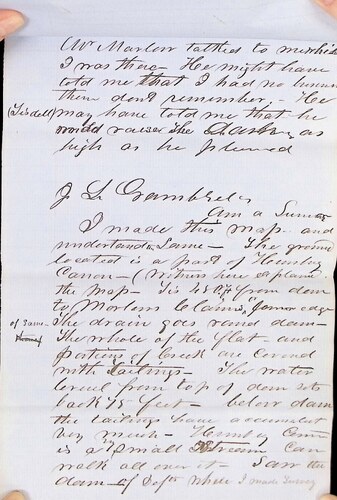 Mr Marlow talked to me while
I was there - He might have
told me that I had no business
there don't remember - He
(Tisdell) may have told me that he
would raise the Dam as
high as he pleased
J L Gamble
Am a Survor
I made this map and
understand same - The ground
located is a part of Humbug
Canon - (Witness here explains
the map - Tis 45 ft from dam
to Morlens Claims,
of same. The drain goes round dam -
The whole of the flat and
portions of Creek are Covered
with Tailings - The water
level from top of dam sets
back 75 feet - below dam
the tailings have accumulated
very much - Humbug Creek
is a small Stream Can
walk all over it - Saw the
dam - of Defts where I made Survey